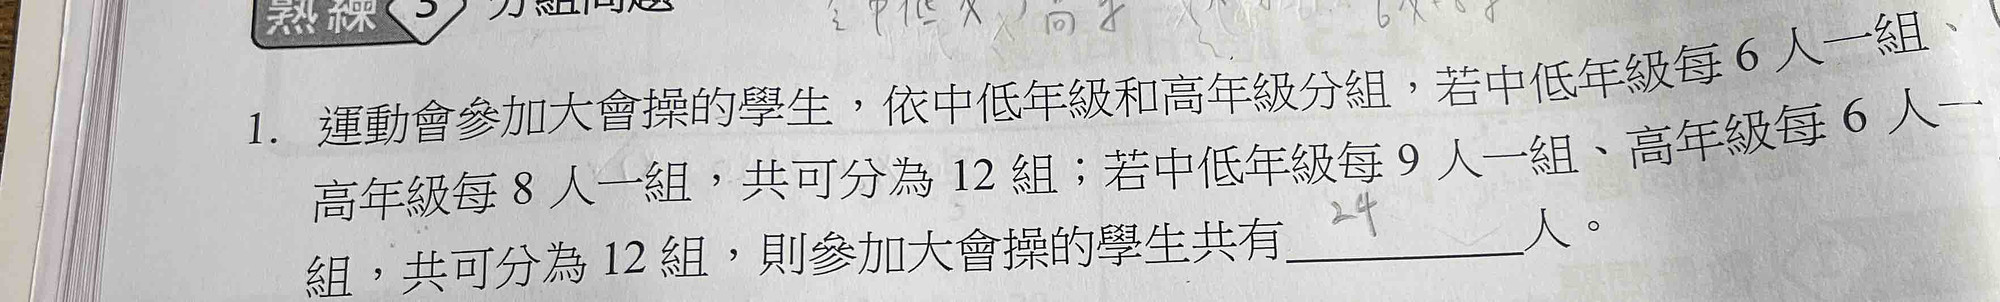 熟練 3 分組問題
1. 運動會參加大會操的學生，依中低年級和高年級分組，若中低年級每 6 人一組、
高年級每 8 人一組，共可分為 12 組；若中低年級每 9 人一組、高年級每 6 人一
組，共可分為 12 組，則參加大會操的學生共有 24 人。